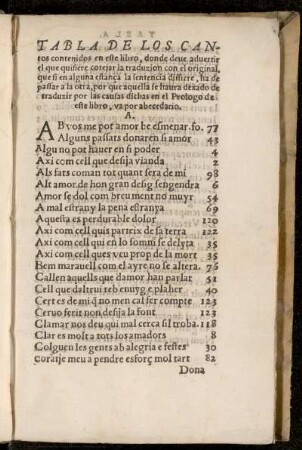 TABLA DE LOS CAN-
tos contenidos en este libro, donde deue aduertir
el que quisiere cotejar la traduzion con el original,
que si en alguna estança la sentencia differe, ha de
passar a la otra, por que aquella se haura dexado de
traduzir por las causas dichas en el Prologo de
este libro, va por abecedario.
A.
AB vos me pot amor be esmenar. fo. 77
Alguns passats donaren si amor 43
Algu no pot hauer en si poder 4
Axi com cell que desija vianda 2
Als fats coman tot quant sera de mi 98
Alt amor de hon gran desig s'engendra 6
Amor se dol com breument no muyr 54
A mal estrany la pena estranya 69
Aquesta es perdurable dolor 120
Axi com cell quis parteix de sa terra 122
Axi com cell qui en lo somni se delyta 35
Axi com cell ques veu prop de la mort 35
Bem marauell com el ayre no se altera. 76
Callen aquells que damor han parlat 51
Cell que daltrui reb enuig e plaher 40
Cert es de mi q̃ no men cal fer compte 123
Ceruo ferit non desija la font 123
Clamar nos deu qui mal cerca si l troba. 118
Clar es molt a tots los amadors 8
Colguen les gents ab alegria e festes 30
coratje meu a pendre esforç mol tart 82
Dona